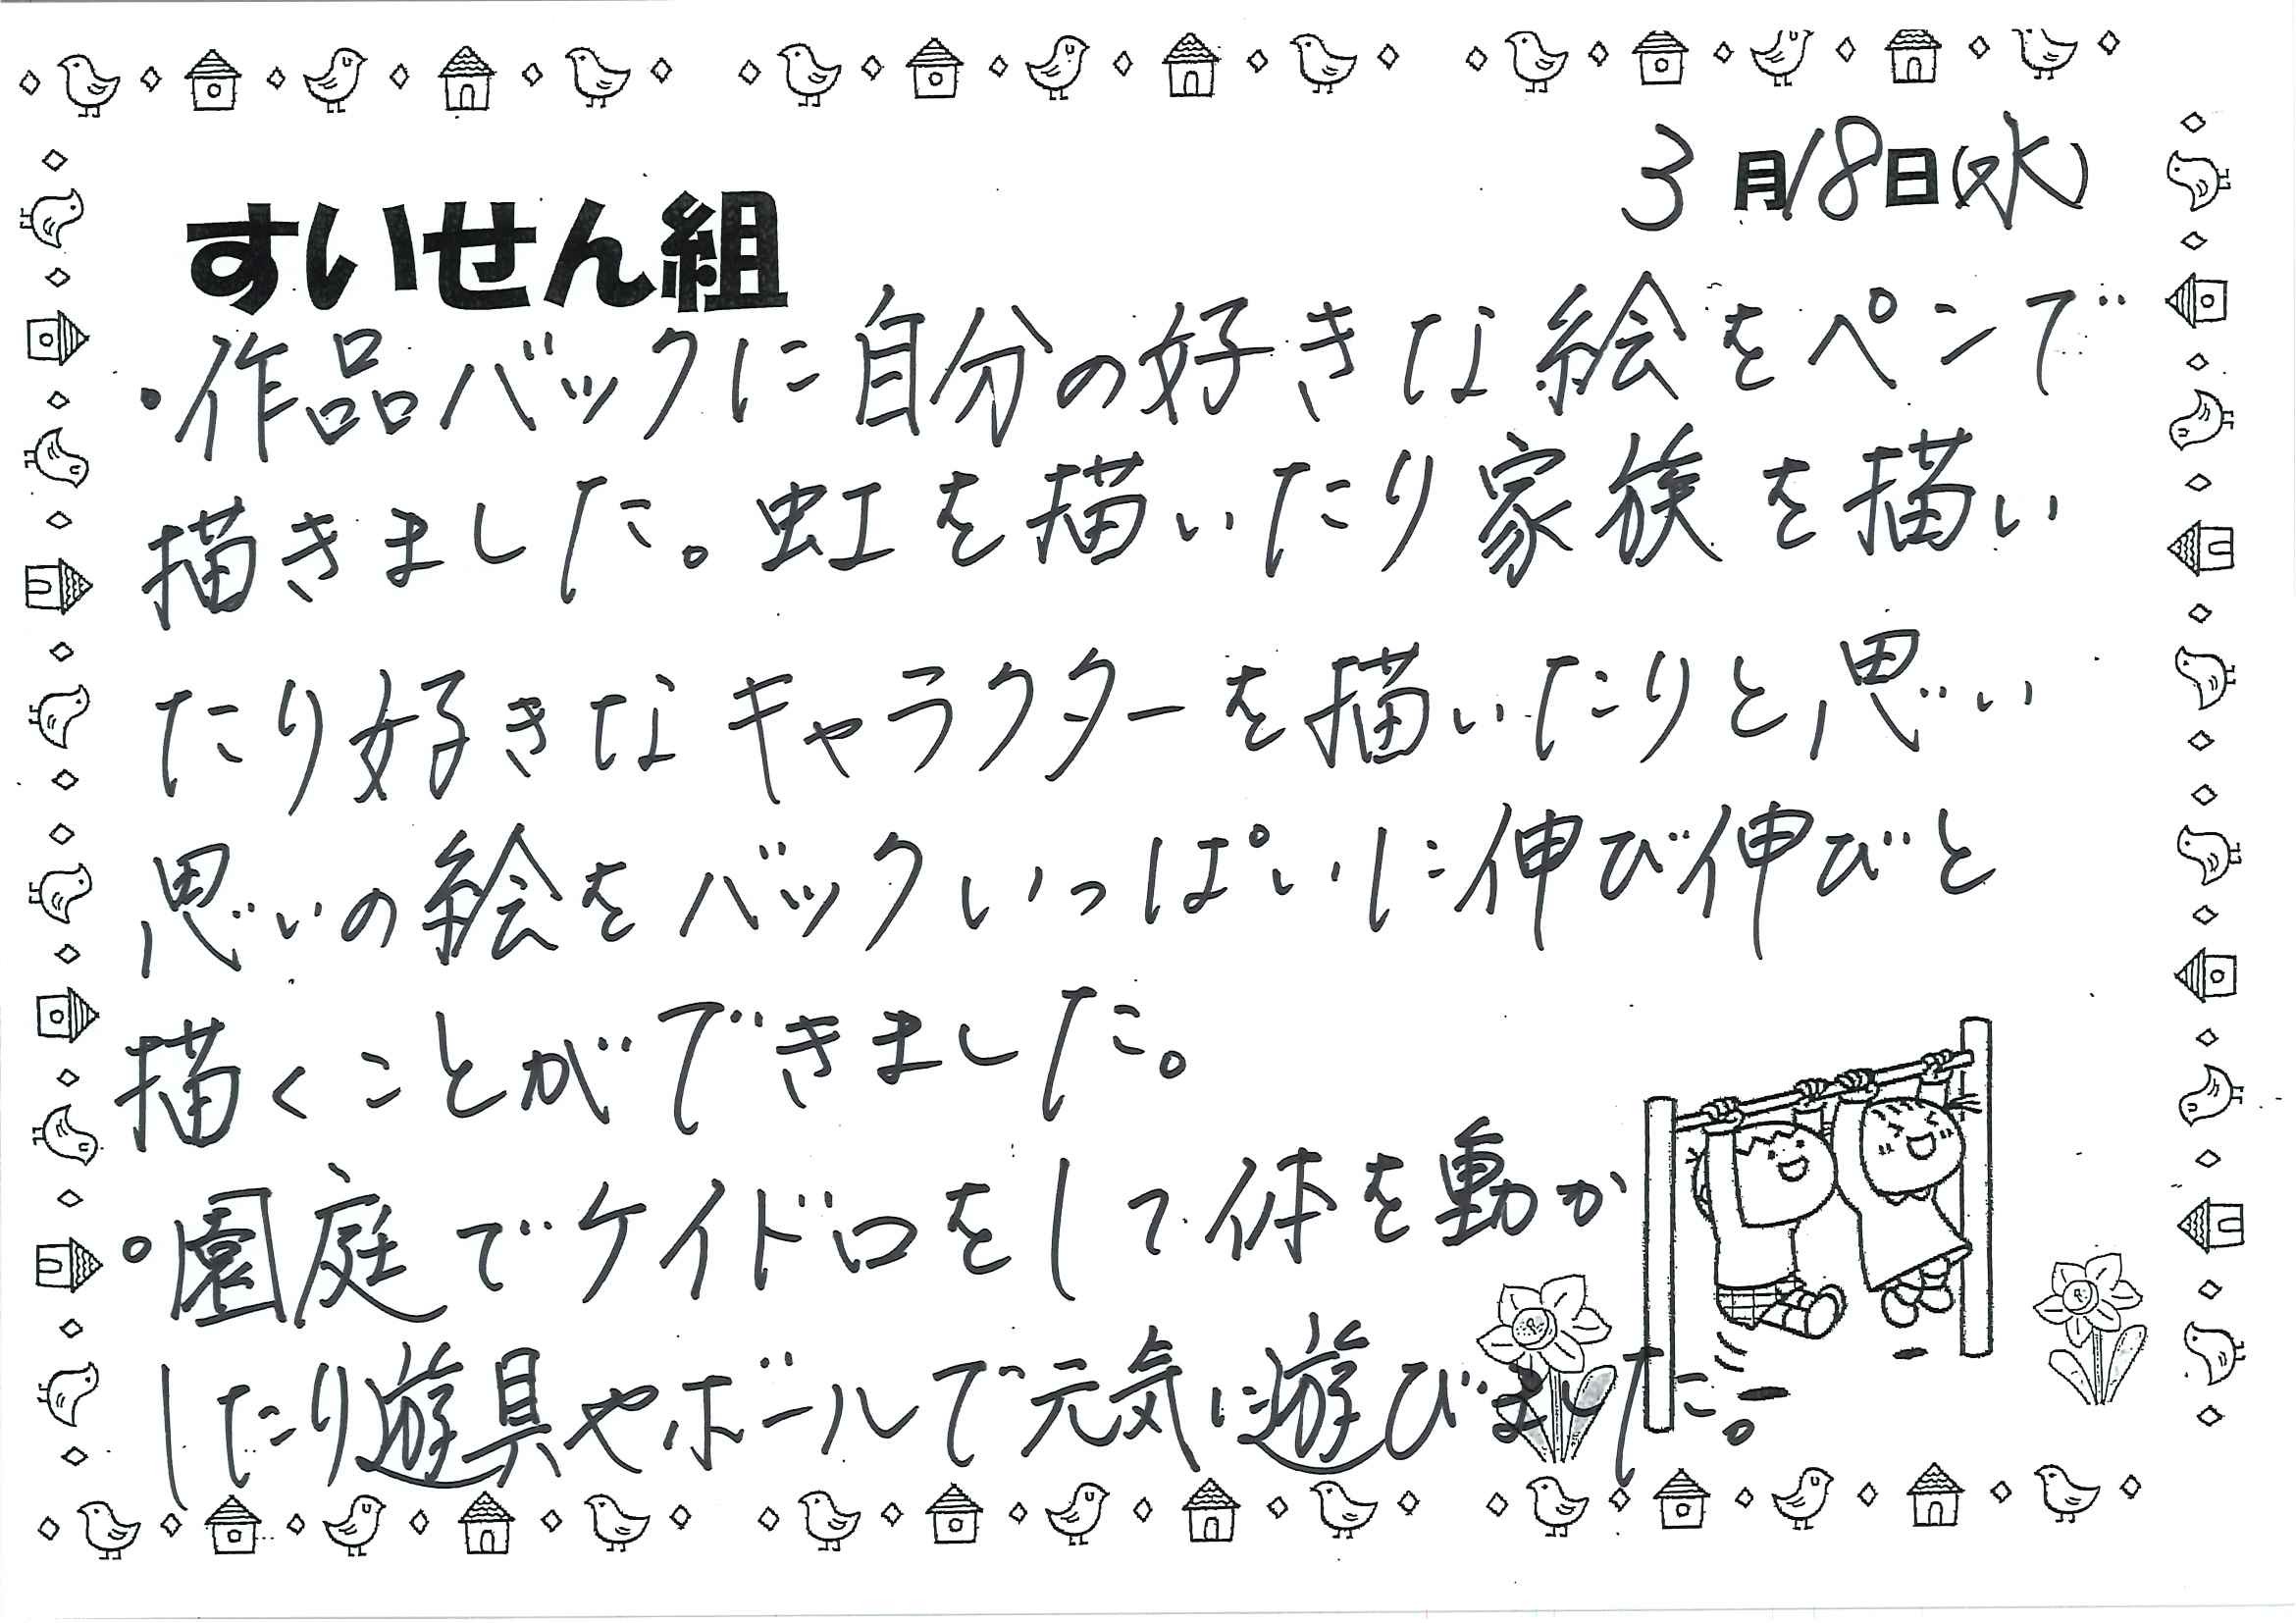 3月18日(水)
すいせん組
・作品バックに自分の好きな絵をペンで
描きました。虹を描いたり家族を描い
たり好きなキャラクターを描いたりと思い
思いの絵をバックいっぱいに伸び伸びと
描くことができました。
○園庭でケイドロをして体を動か
したり遊具やボールで元気に遊びました。